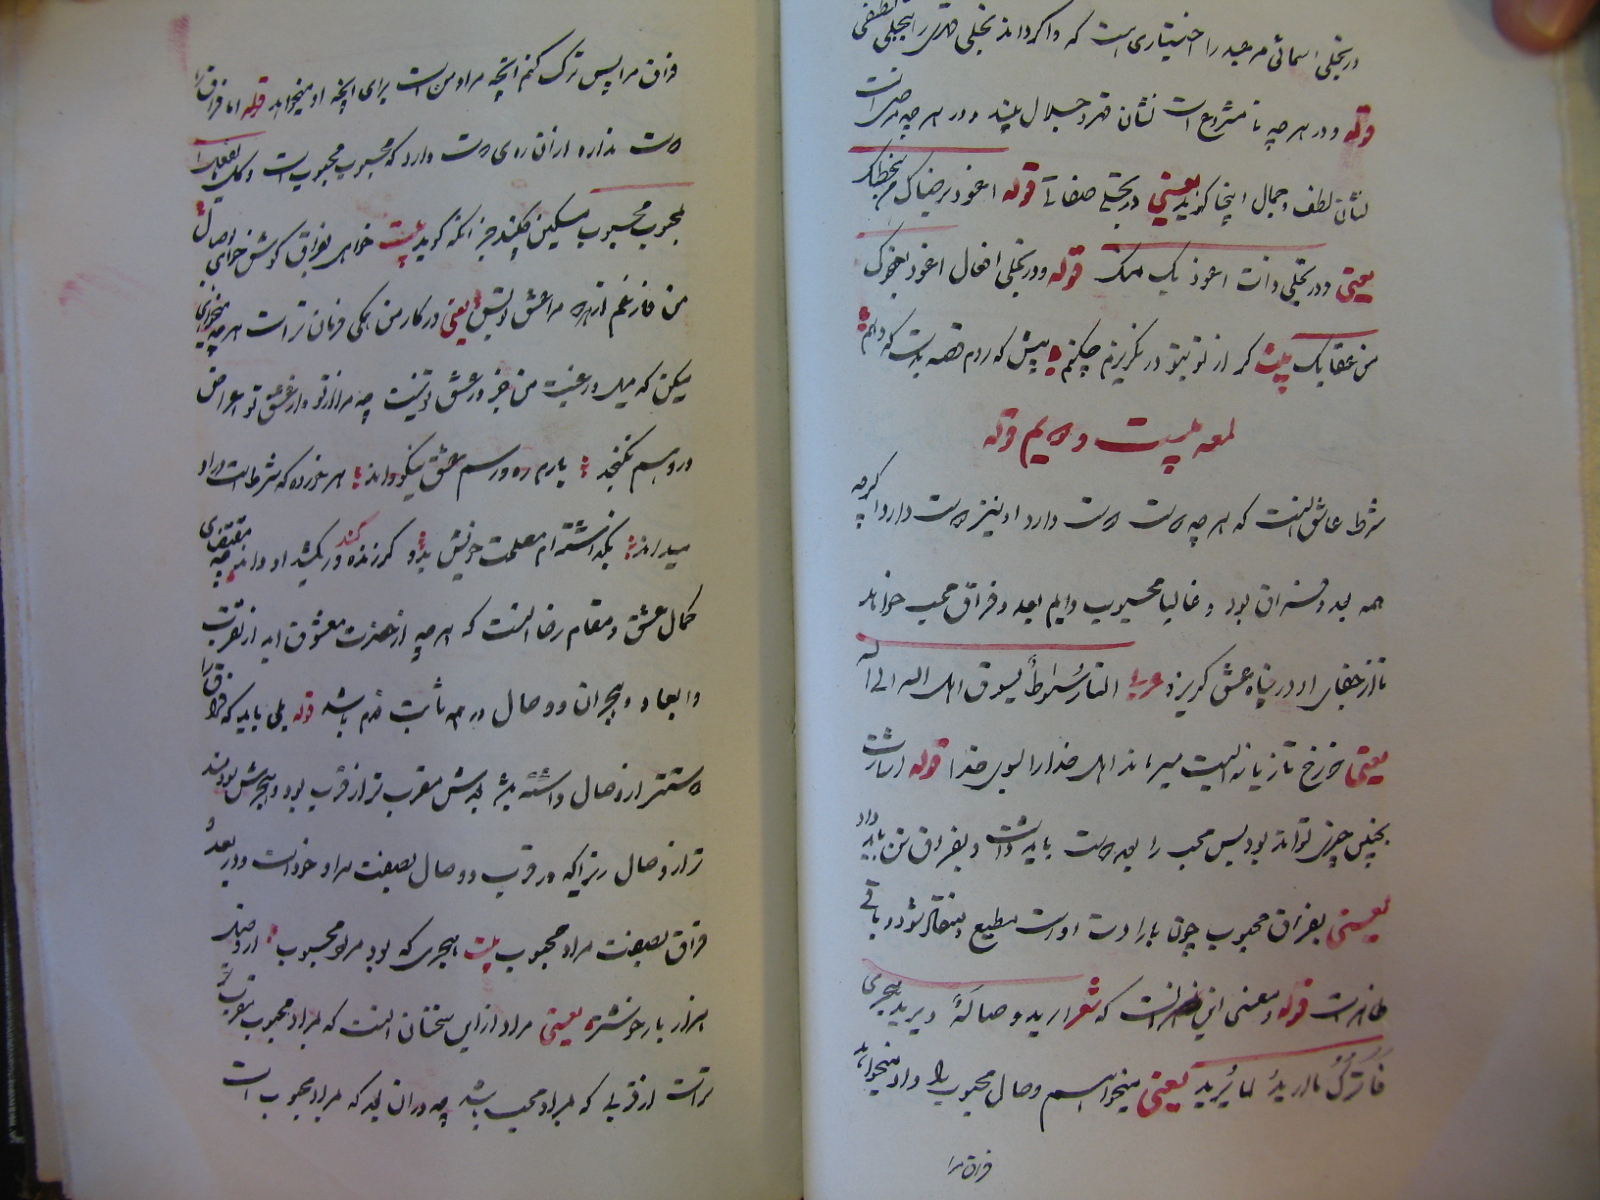 در تجلی اسمائی مر عبد را اختیاری است که واگرداند تجلی قهری را بتجلی لطفی
قوله و در هر چه نا مشروع است نشان قهر و جلال بیند و در هر چه مرضی است
نشان لطف و جمال اینجا گوید یعنی در تجلی صفات قوله اعوذ برضاک من سخطک
یعنی و در تجلی ذات اعوذ بک منک قوله و در تجلی افعال اعوذ بعفوک
من عقابک بیت گر از تو بتو در نگریزم چکنم پیش که روم قصه بدست که دهم
لمعه بیست و دویم قوله
شرط عاشق آنست که هر چه دوست دوست دارد او نیز دوست دارد اگرچه
همه بعد و فراق بود و غالبا محبوب دایم بعد و فراق محب خواهد
تا از جفای او در پناه عشق گریزد عربی النار سوط یسوق اهل الله الی الله
یعنی دوزخ تازیانه ایست میراند اهل خدا را بسوی خدا قوله اشارت
بچنین چیزی تواند بود پس محب را بعد دوست باید داشت و بفراق تن باید داد
یعنی بفراق محبوب چون بارادت اوست مطیع و منقاد شود و باقی
ظاهر است قوله و معنی این آنست که شعر ارید وصاله و یرید هجری
فاترک ما ارید لما یرید یعنی میخواهم وصال محبوب را و او میخواهد
فراق مرا
فراق مرا پس ترک کنم آنچه مراد من است برای آنچه او میخواهد قوله اما فراق را
دوست ندارد از آن روی دوست دارد که محبوب محبوب است و کل ما یفعل
المحبوب محبوب مسکین چکند جز آنکه گوید بیت خواهی بفراق کوش خواهی بوصال
من فارغم از هر دو مرا عشق تو بس یعنی در کار من همگی فرمان تراست هر چه میخواهی
میکن که میل و رغبت من جز در عشق تو نیست چه مرا از تو و از عشق تو اعراض
در وهم نگنجد یارم ره و رسم عشق نیکو داند هر خورده که شرط است در او
میراند بگذاشته‌ام مصلحت خویش بدو گر زنده کند ور بکشد او داند چه مقتضای
کمال عشق و مقام رضا آنست که هر چه از حضرت معشوق آید از تقرب
و ابعاد و هجران و وصال در همه ثابت قدم باشد قوله بلی باید که فراق را
دوستتر از وصال داشته باشد بعدش مقرب‌تر از قرب بود و هجرش سودمند
تر از وصال زیرا که در قرب و وصال بصفت مراد خود است و در بعد و
فراق بصفت مراد محبوب بیت هجری که بود مراد محبوب از وصل
هزار بار خوشتر یعنی مراد ازین سخنان آنست که مراد محبوب مقرب تر
تر است از قربی که مراد محب باشد چه در آن بعد که مراد محبوب است